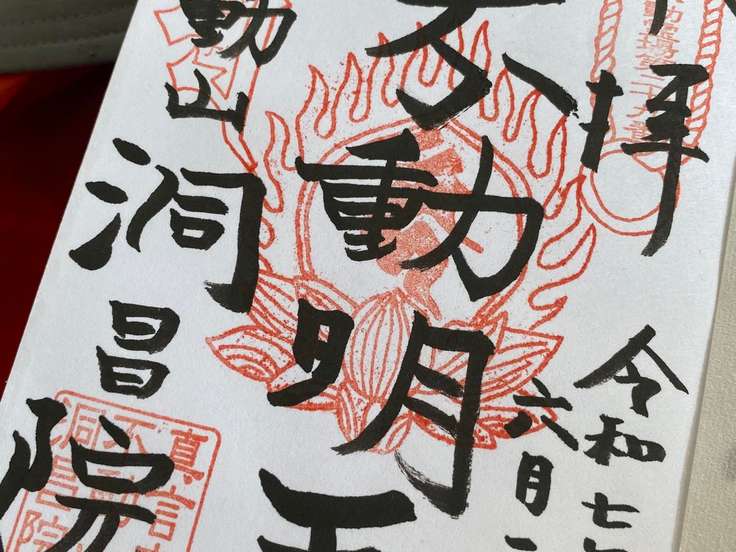 拝
令和七
六月
不動明王
動山
洞昌院
真言
不動
洞昌院